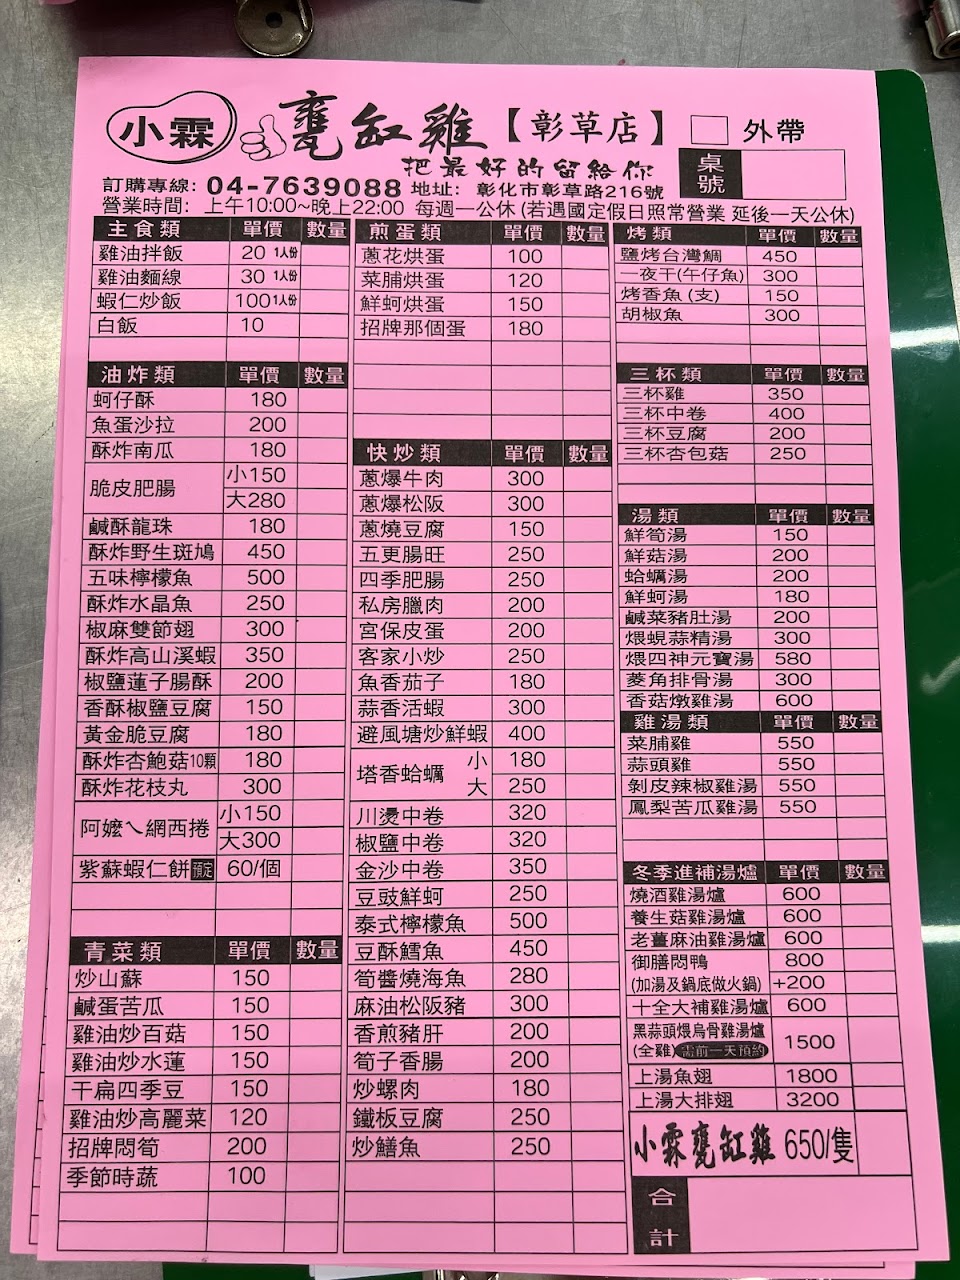 小霖 甕缸雞【彰草店】 外帶
把最好的留給你
桌號
訂購專線: 04-7639088 地址: 彰化市彰草路216號
營業時間: 上午10:00~晚上22:00 每週一公休 (若遇國定假日照常營業 延後一天公休)
主食類 單價 數量
雞油拌飯 20 1人份
雞油麵線 30 1人份
蝦仁炒飯 100 1人份
白飯 10
油炸類 單價 數量
蚵仔酥 180
魚蛋沙拉 200
酥炸南瓜 180
脆皮肥腸 小150
大280
鹹酥龍珠 180
酥炸野生斑鳩 450
五味檸檬魚 500
酥炸水晶魚 250
椒麻雙節翅 300
酥炸高山溪蝦 350
椒鹽蓮子腸酥 200
香酥椒鹽豆腐 150
黃金脆豆腐 180
酥炸杏鮑菇10顆 180
酥炸花枝丸 300
阿嬤ㄟ網西捲 小150
大300
紫蘇蝦仁餅 預定 60/個
青菜類 單價 數量
炒山蘇 150
鹹蛋苦瓜 150
雞油炒百菇 150
雞油炒水蓮 150
干扁四季豆 150
雞油炒高麗菜 120
招牌悶筍 200
季節時蔬 100
煎蛋類 單價 數量
蔥花烘蛋 100
菜脯烘蛋 120
鮮蚵烘蛋 150
招牌那個蛋 180
快炒類 單價 數量
蔥爆牛肉 300
蔥爆松阪 300
蔥燒豆腐 150
五更腸旺 250
四季肥腸 250
私房臘肉 200
宮保皮蛋 200
客家小炒 250
魚香茄子 180
蒜香活蝦 300
避風塘炒鮮蝦 400
塔香蛤蠣 小 180
大 250
川燙中卷 320
椒鹽中卷 320
金沙中卷 350
豆豉鮮蚵 250
泰式檸檬魚 500
豆酥鱈魚 450
筍醬燒海魚 280
麻油松阪豬 300
香煎豬肝 200
筍子香腸 200
炒螺肉 180
鐵板豆腐 250
炒鱔魚 250
烤類 單價 數量
鹽烤台灣鯛 450
一夜干(午仔魚) 300
烤香魚(支) 150
胡椒魚 300
三杯類 單價 數量
三杯雞 350
三杯中卷 400
三杯豆腐 200
三杯杏包菇 250
湯類 單價 數量
鮮筍湯 150
鮮菇湯 200
蛤蠣湯 200
鮮蚵湯 180
鹹菜豬肚湯 200
煨蜆蒜精湯 300
煨四神元寶湯 580
菱角排骨湯 300
香菇燉雞湯 600
雞湯類 單價 數量
菜脯雞 550
蒜頭雞 550
剝皮辣椒雞湯 550
鳳梨苦瓜雞湯 550
冬季進補湯爐 單價 數量
燒酒雞湯爐 600
養生菇雞湯爐 600
老薑麻油雞湯爐 600
御膳悶鴨 800
(加湯及鍋底做火鍋) +200
十全大補雞湯爐 600
黑蒜頭煨烏骨雞湯爐
(全雞) 需前一天預約 1500
上湯魚翅 1800
上湯大排翅 3200
小霖甕缸雞 650/隻
合計